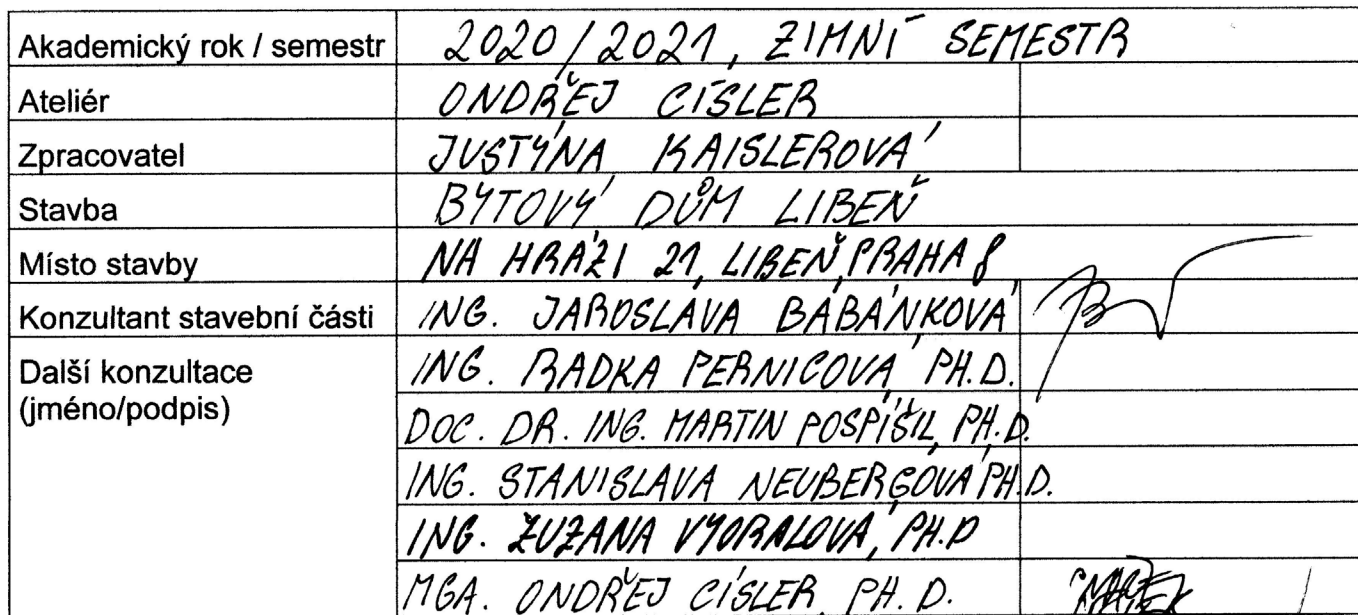 Akademický rok / semestr 2020/2021, ZIMNÍ SEMESTR
Ateliér ONDŘEJ CÍSLER
Zpracovatel JUSTÝNA KAISLEROVÁ
Stavba BYTOVÝ DŮM LIBEŇ
Místo stavby NA HRÁZI 21, LIBEŇ, PRAHA 8
Konzultant stavební části ING. JAROSLAVA BABÁNKOVÁ
Další konzultace ING. RADKA PERNICOVÁ PH.D.
(jméno/podpis)
DOC. DR. ING. MARTIN POSPÍŠIL, PH.D.
ING. STANISLAVA NEUBERGOVÁ PH.D.
ING. ZUZANA VYORALOVÁ, PH.D
MGA. ONDŘEJ CÍSLER, PH. D.